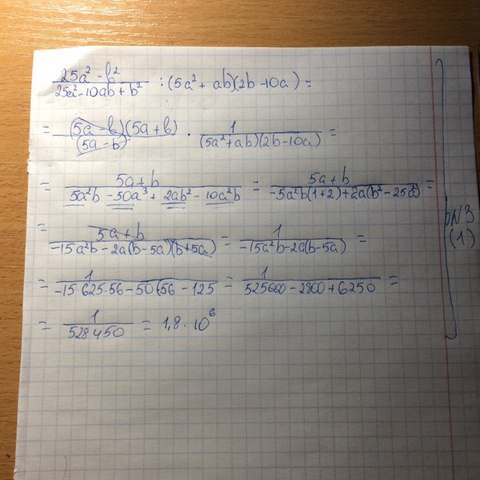 25a² - b² / 25a² - 10ab + b² : (5a² + ab)(2b - 10a) =
= (5a - b)(5a + b) / (5a - b) · 1 / (5a² + ab)(2b - 10a) =
= 5a + b / 5a²b - 50a³ + 2ab² - 10a²b = 5a + b / -5a²b(1+2) + 2a(b² - 25a²) =
= 5a + b / -15a²b - 2a(b - 5a)(b + 5a) = 1 / -15a²b - 2a(b - 5a) =
= 1 / -15 625·56 - 50(56 - 125 = 1 / 525000 - 2800 + 6250 =
= 1 / 528450 = 1,8 · 10⁶
№3
(1)